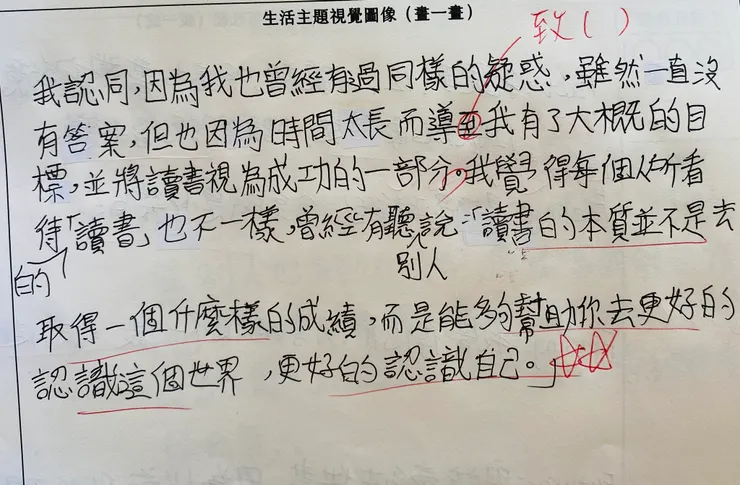 生活主題視覺圖像（畫一畫）
致（ ）
我認同，因為我也曾經有過同樣的疑惑，雖然一直沒
有答案，但也因為時間太長而導至我有了大概的目
標，並將讀書視為成功的一部分。我覺得每個人所看
待「讀書」也不一樣，曾經有聽說：「讀書的本質並不是去
的
別人
取得一個什麼樣的成績，而是能夠幫助你去更好的
認識這個世界，更好的認識自己。」